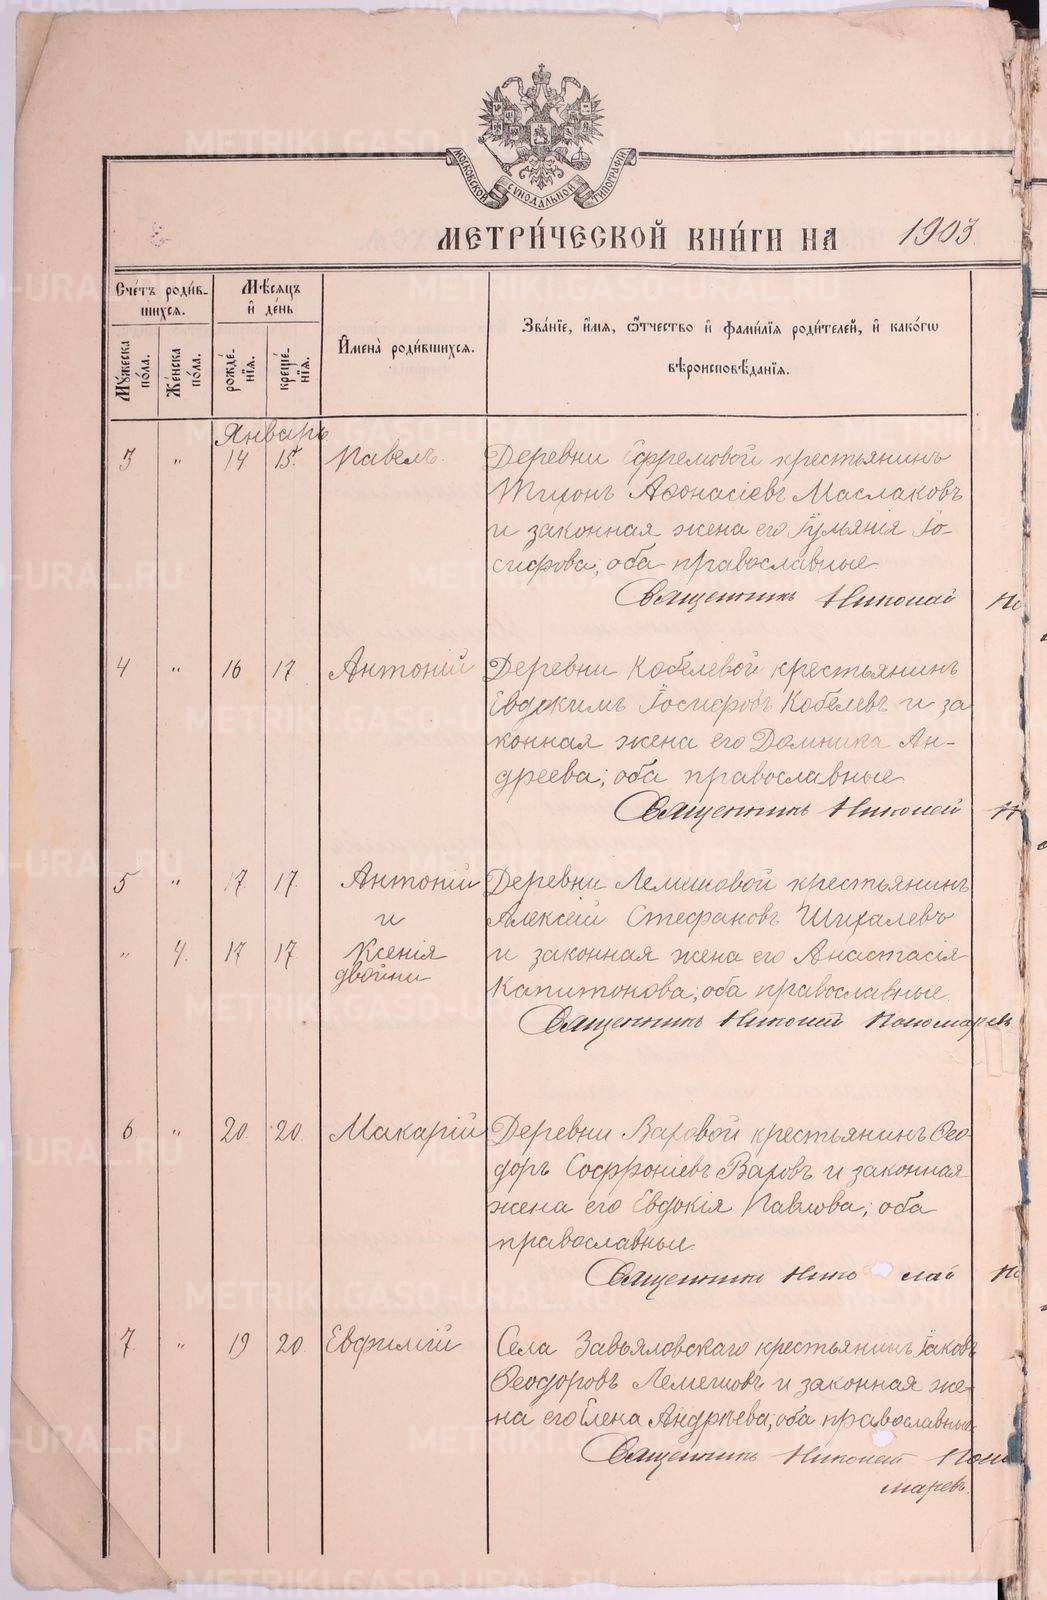 МОСКОВСКОЙ СѴНОДАЛЬНОЙ ТИПОГРАФІИ
МЕТРИ́ЧЕСКОЙ КНИ́ГИ НА 1903
Сче́тъ роди́в-
шихсѧ.
Мѣ́сѧцъ
и҆ де́нь
И҆мена̀ роди́вшихсѧ.
Зва́нїе, и҆́мѧ, ѻ҆́тчество и҆ фами́лїѧ роди́телей, и҆ како́гѡ
вѣроисповѣ́данїѧ.
Мꙋ́жеска
по́ла.
Же́нска
по́ла.
рожде́-
нїѧ.
креще́-
нїѧ.
Январь
3 " 14 15. Павелъ.
Деревни Ефремовой крестьянинъ
Тихонъ Аѳонасіевъ Маслаковъ
и законная жена его Іульянія Іо-
сифова, оба православные
Священникъ Николай По
4 " 16 17 Антоній
Деревни Кобелевой крестьянинъ
Евдокимъ Іосифовъ Кобелевъ и за
конная жена его Домника Ан-
дреева; оба православные
Священникъ Николай П
5 " 17. 17. Антоній
и
" 4. 17 17. Ксенія
двойни
Деревни Лемешовой крестьянинъ
Алексій Стефановъ Шихалевъ
и законная жена его Анастасія
Капитонова; оба православные.
Священникъ Николай Пономаревъ
6 " 20. 20. Макарій
Деревни Варовой крестьянинъ Ѳео-
доръ Софроніевъ Варовъ и законная
жена его Евдокія Павлова; оба
православные.
Священникъ Николай По
7. " 19 20. Евфимій
Села Завьяловскаго крестьянинъ Іаковъ
Ѳеодоровъ Лемешовъ и законная же-
на его Елена Андреева, оба православные
Священникъ Николай Поно
маревъ.
METRIKI.GASO-URAL.RU